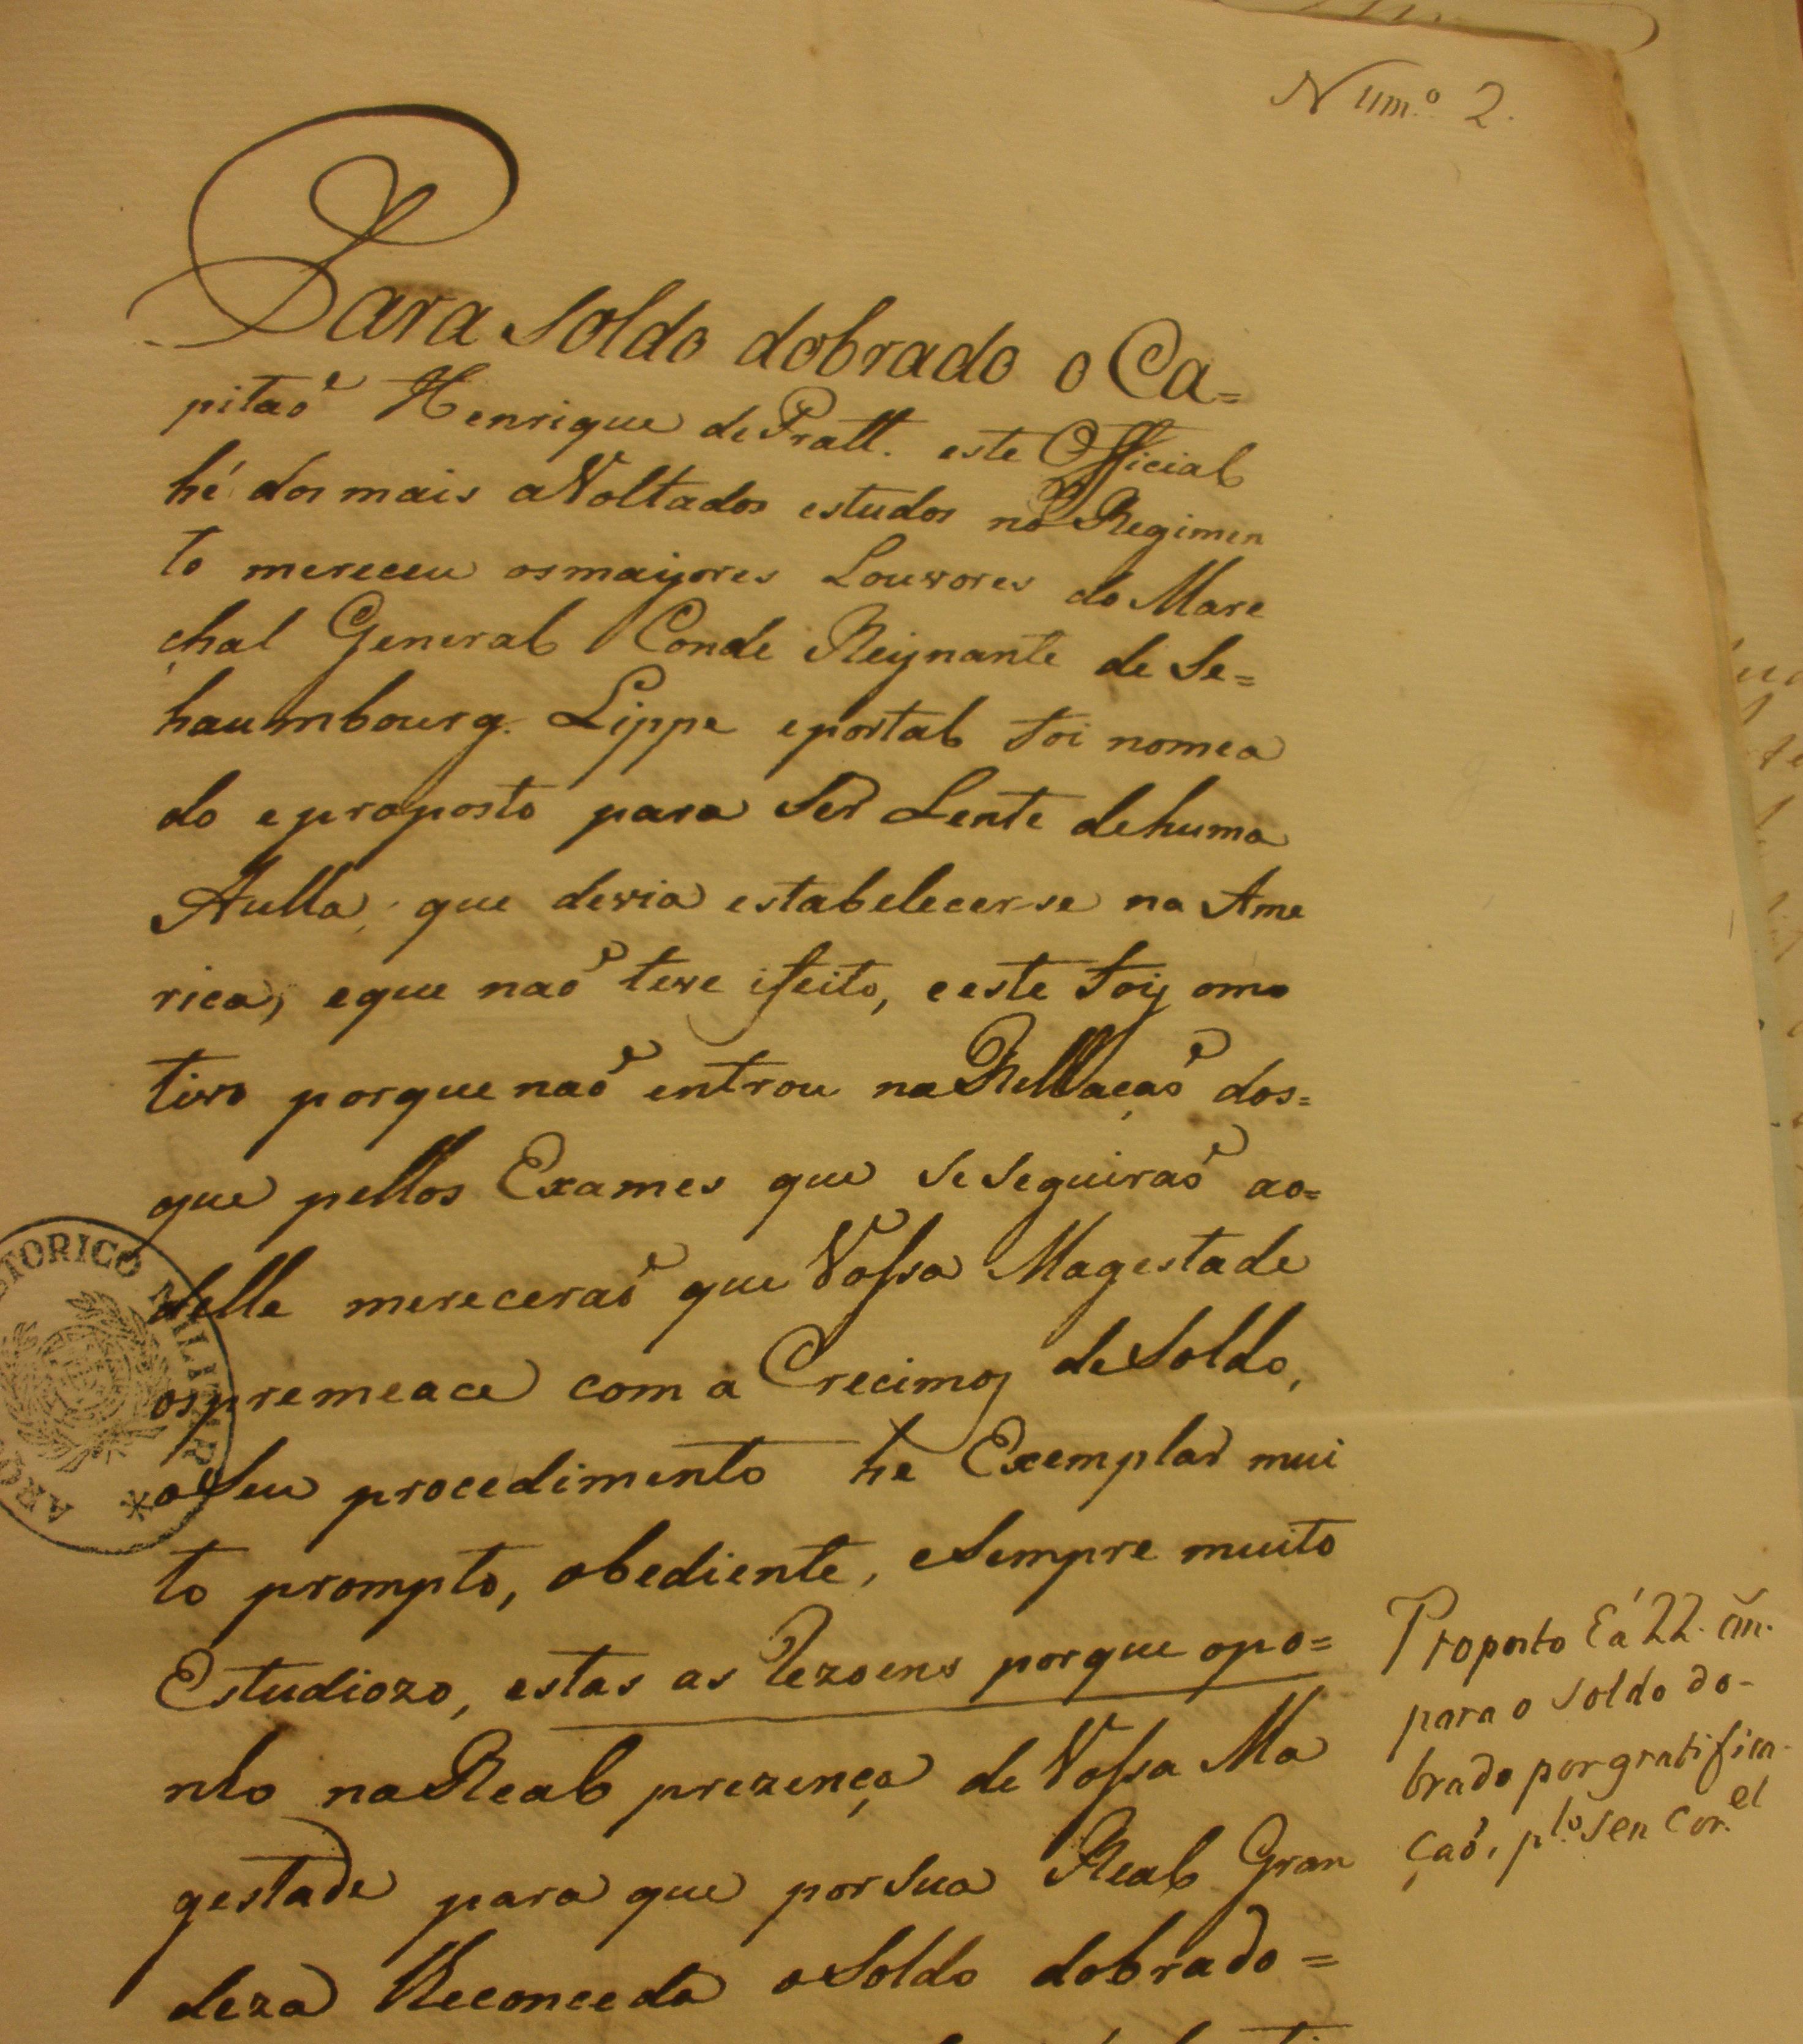 Num.º 2.
Para Soldo dobrado o Ca=
pitaõ Henrique de Pratt. este Official
hé dos mais aVoltados estudos no Regimen
to mereceu os mayores Louvores do Mare
chal General Conde Reynante de Sc=
haumbourg. Lippe e por tal foi nomea
do e proposto para Ser Lente de huma
Aulla, que devia estabelecer-se na Ame
rica, e que naõ teve ifeito, e este foy o mo
tivo porque naõ entrou na Rellaçaõ dos=
que pellos Exames que Se Seguiraõ ao=
delle mereceraõ que Vossa Magestade
os premeace com a Crecimoz de Soldo,
o Seu procedimento he Exemplar mui
to prompto, obediente, e Sempre muito
Estudiozo, estas as Rezoens porque opo=
nho na Real prezença de Vossa Ma
gestade para que por Sua Real Gran
deza lhe conceda o Soldo dobrado=
Proposto
para o Soldo do-
brado por gratifica-
çaõ, p.lo seu Cor.el
HISTORICO MILITAR